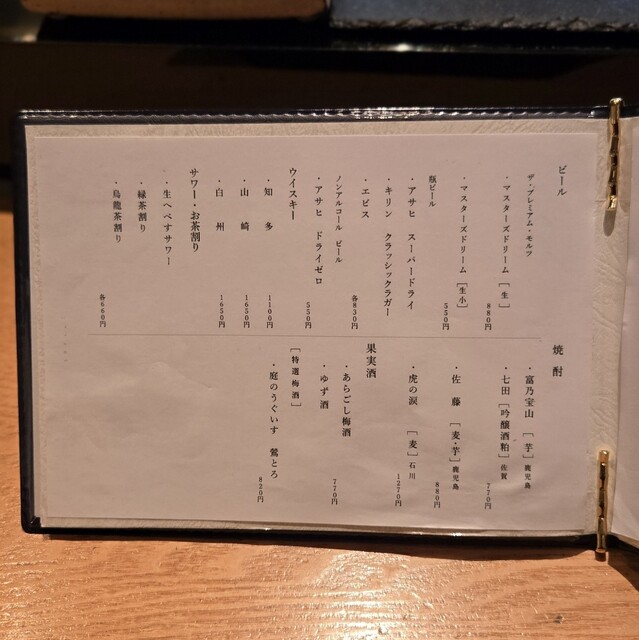 ビール
ザ・プレミアム・モルツ
・マスターズドリーム [生]
880円
・マスターズドリーム [生小]
550円
瓶ビール
・アサヒ スーパードライ
・キリン クラッシックラガー
・エビス
各830円
ノンアルコール ビール
・アサヒ ドライゼロ
550円
ウイスキー
・知多
1100円
・山崎
1650円
・白州
1650円
サワー・お茶割り
・生へべすサワー
・緑茶割り
・烏龍茶割り
各660円
焼酎
・富乃宝山 [芋] 鹿児島
・七田 [吟醸酒粕] 佐賀
770円
・佐藤 [麦・芋] 鹿児島
880円
・虎の涙 [麦] 石川
1270円
果実酒
・あらごし梅酒
・ゆず酒
770円
[特選梅酒]
・庭のうぐいす 鶯とろ
820円